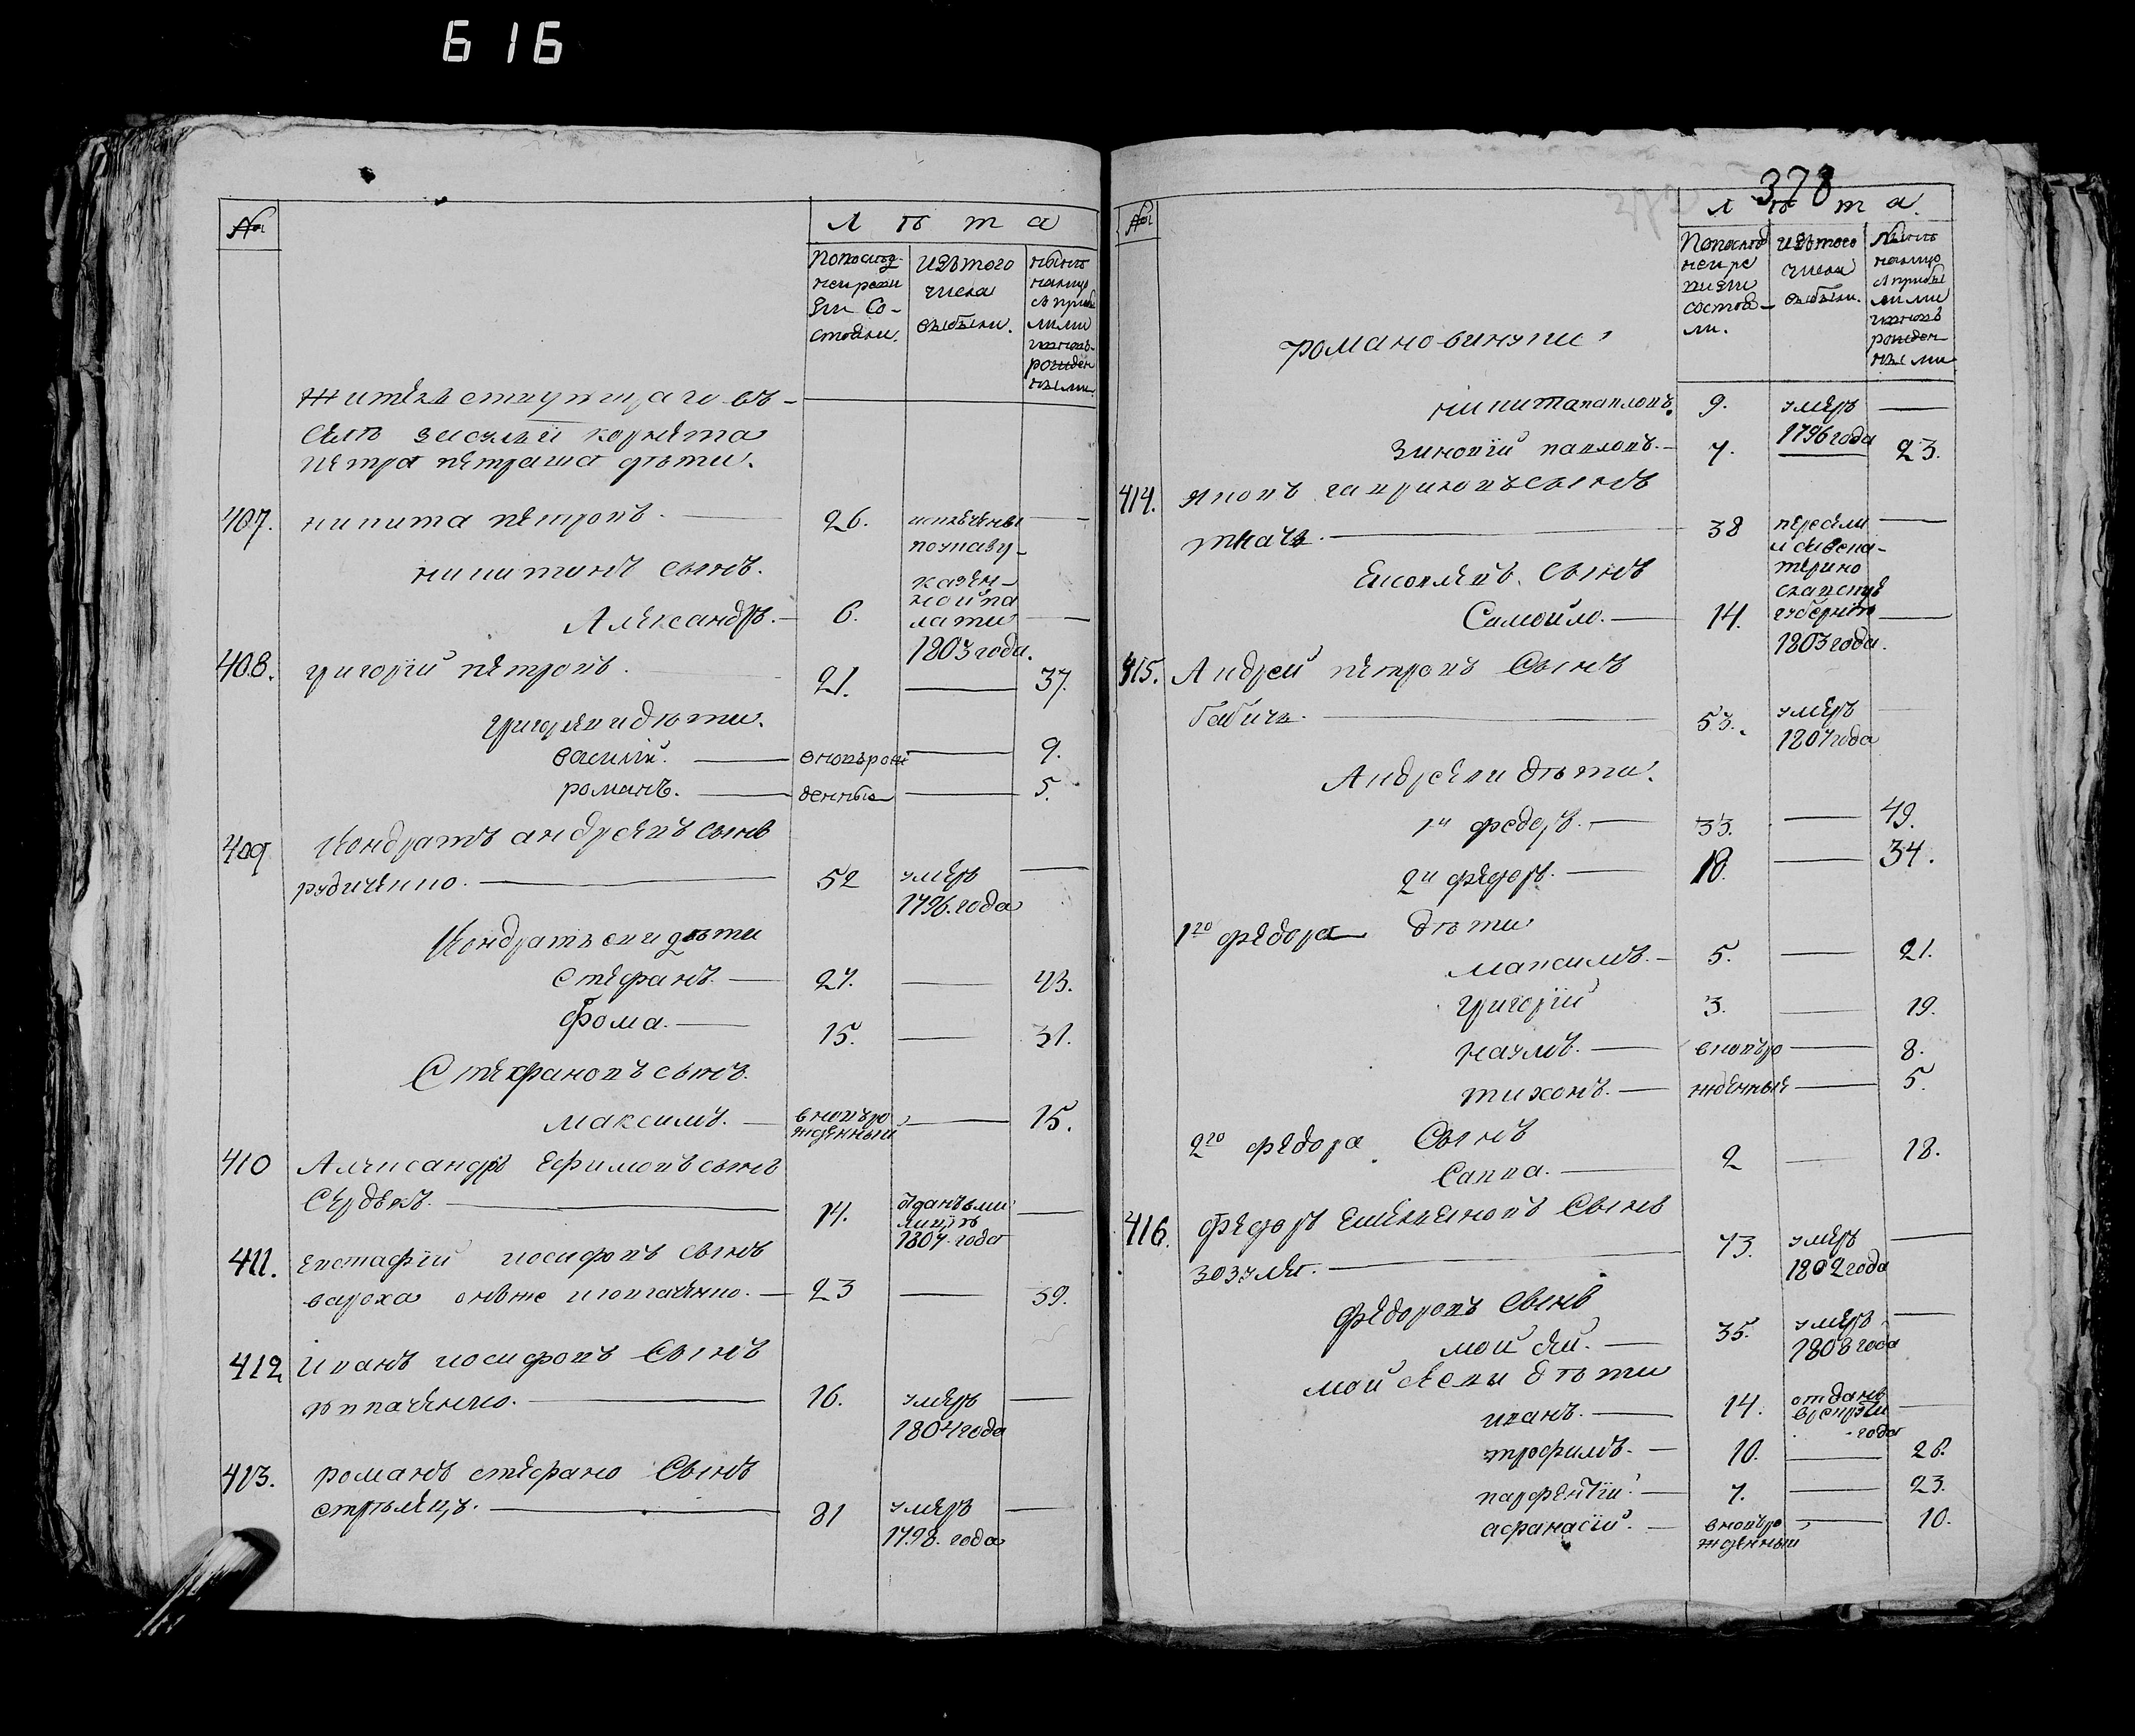 616
№
Л ѣ т а
По послѣд-
ней реви
зіи со-
стояли.
изъ того
числа
выбыли.
нынѣ
налицо
съ прибы
лыми
и новъ-
рожден
ными.
жительствующаго въ
селѣ
корнета
Петра Петраша дѣти.
407. никита петровъ. — 26. исключены —
по указу
никитинъ сынъ. казен-
ной па
Александръ. — 6. латы —
1803 года.
408. григорїй петровъ. 21. — 37.
григорьеви дѣти.
василїй. — вновьрож — 9.
романъ. — денные — 5.
409 Кондратъ андреевъ сынъ
рудиченко. — 52 умеръ —
1796. года
Кондратьеви дѣти
стефанъ. — 27. — 43.
Фома. — 15. — 31.
Стефановъ сынъ.
максимъ. — вновьро — 15.
жденный
410 Александръ Ефимовъ сынъ
Сердюкъ. — 14. —
1807. года
411. евстафїй иосифовъ сынъ
вароха онъже — 23 — 39.
412 Иванъ иосифовъ Сынъ
16. умеръ —
1804 года
413. романъ стефано Сынъ
стрѣлецъ. — 81 умеръ —
1798. года
378
№
Л ѣ т а.
По послѣд
ней ре
визіи
состоя-
ли.
изъ того
числа
выбыли.
Нынѣ
налицо
съ прибы
лыми
и новъ
рожден
ными
романовинуки,
никита павловъ. 9. умеръ —
1796 года
Зиновїй павловъ. — 7. — 23.
414. яковъ гавриловъ сынъ
ткачъ. — 38 пересели —
лся в ека-
Сынъ терино
славскую
Самойло. — 14. губернию —
1803 года.
415. Андрей петровъ Сынъ
бабичъ. — 53. умеръ —
1807 года
Андрееви дѣти.
1й федоръ. — 33. — 49.
2й федоръ. — 18. — 34.
1го федора дѣти
максимъ. — 5. — 21.
григорїй 3. — 19.
наумъ. — вновьро — 8.
тихонъ. — жденные — 5.
2го федора Сынъ
Савва. — 2 — 18.
416. Федоръ Емельяновъ Сынъ
зозуля. — 73. умеръ —
1802 года
Федоровъ Сынъ
мойсей. — 35. умеръ —
1808 года
мойсеевы дѣти
иванъ. — 14. отданъ —
врекруты
года
трофимъ. — 10. — 26.
парфентїй. — 7. — 23.
афанасїй. — вновьро — 10.
жденный